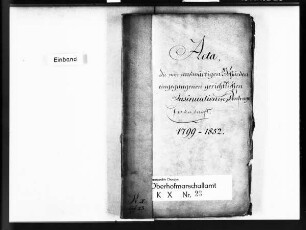 Einband
Acta,
die von auswärtigen Behörden
eingegangenen gerichtlichen
Insinuations
1799 - 1852.
Oberhofmarschallamt
K X Nr. 23